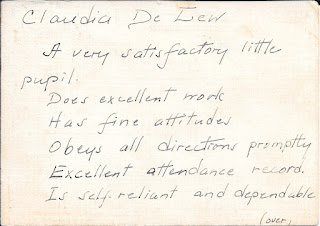 Claudia De Lew
A very satisfactory little
pupil.
Does excellent work
Has fine attitudes
Obeys all directions promptly
Excellent attendance record.
Is self-reliant and dependable
(over)